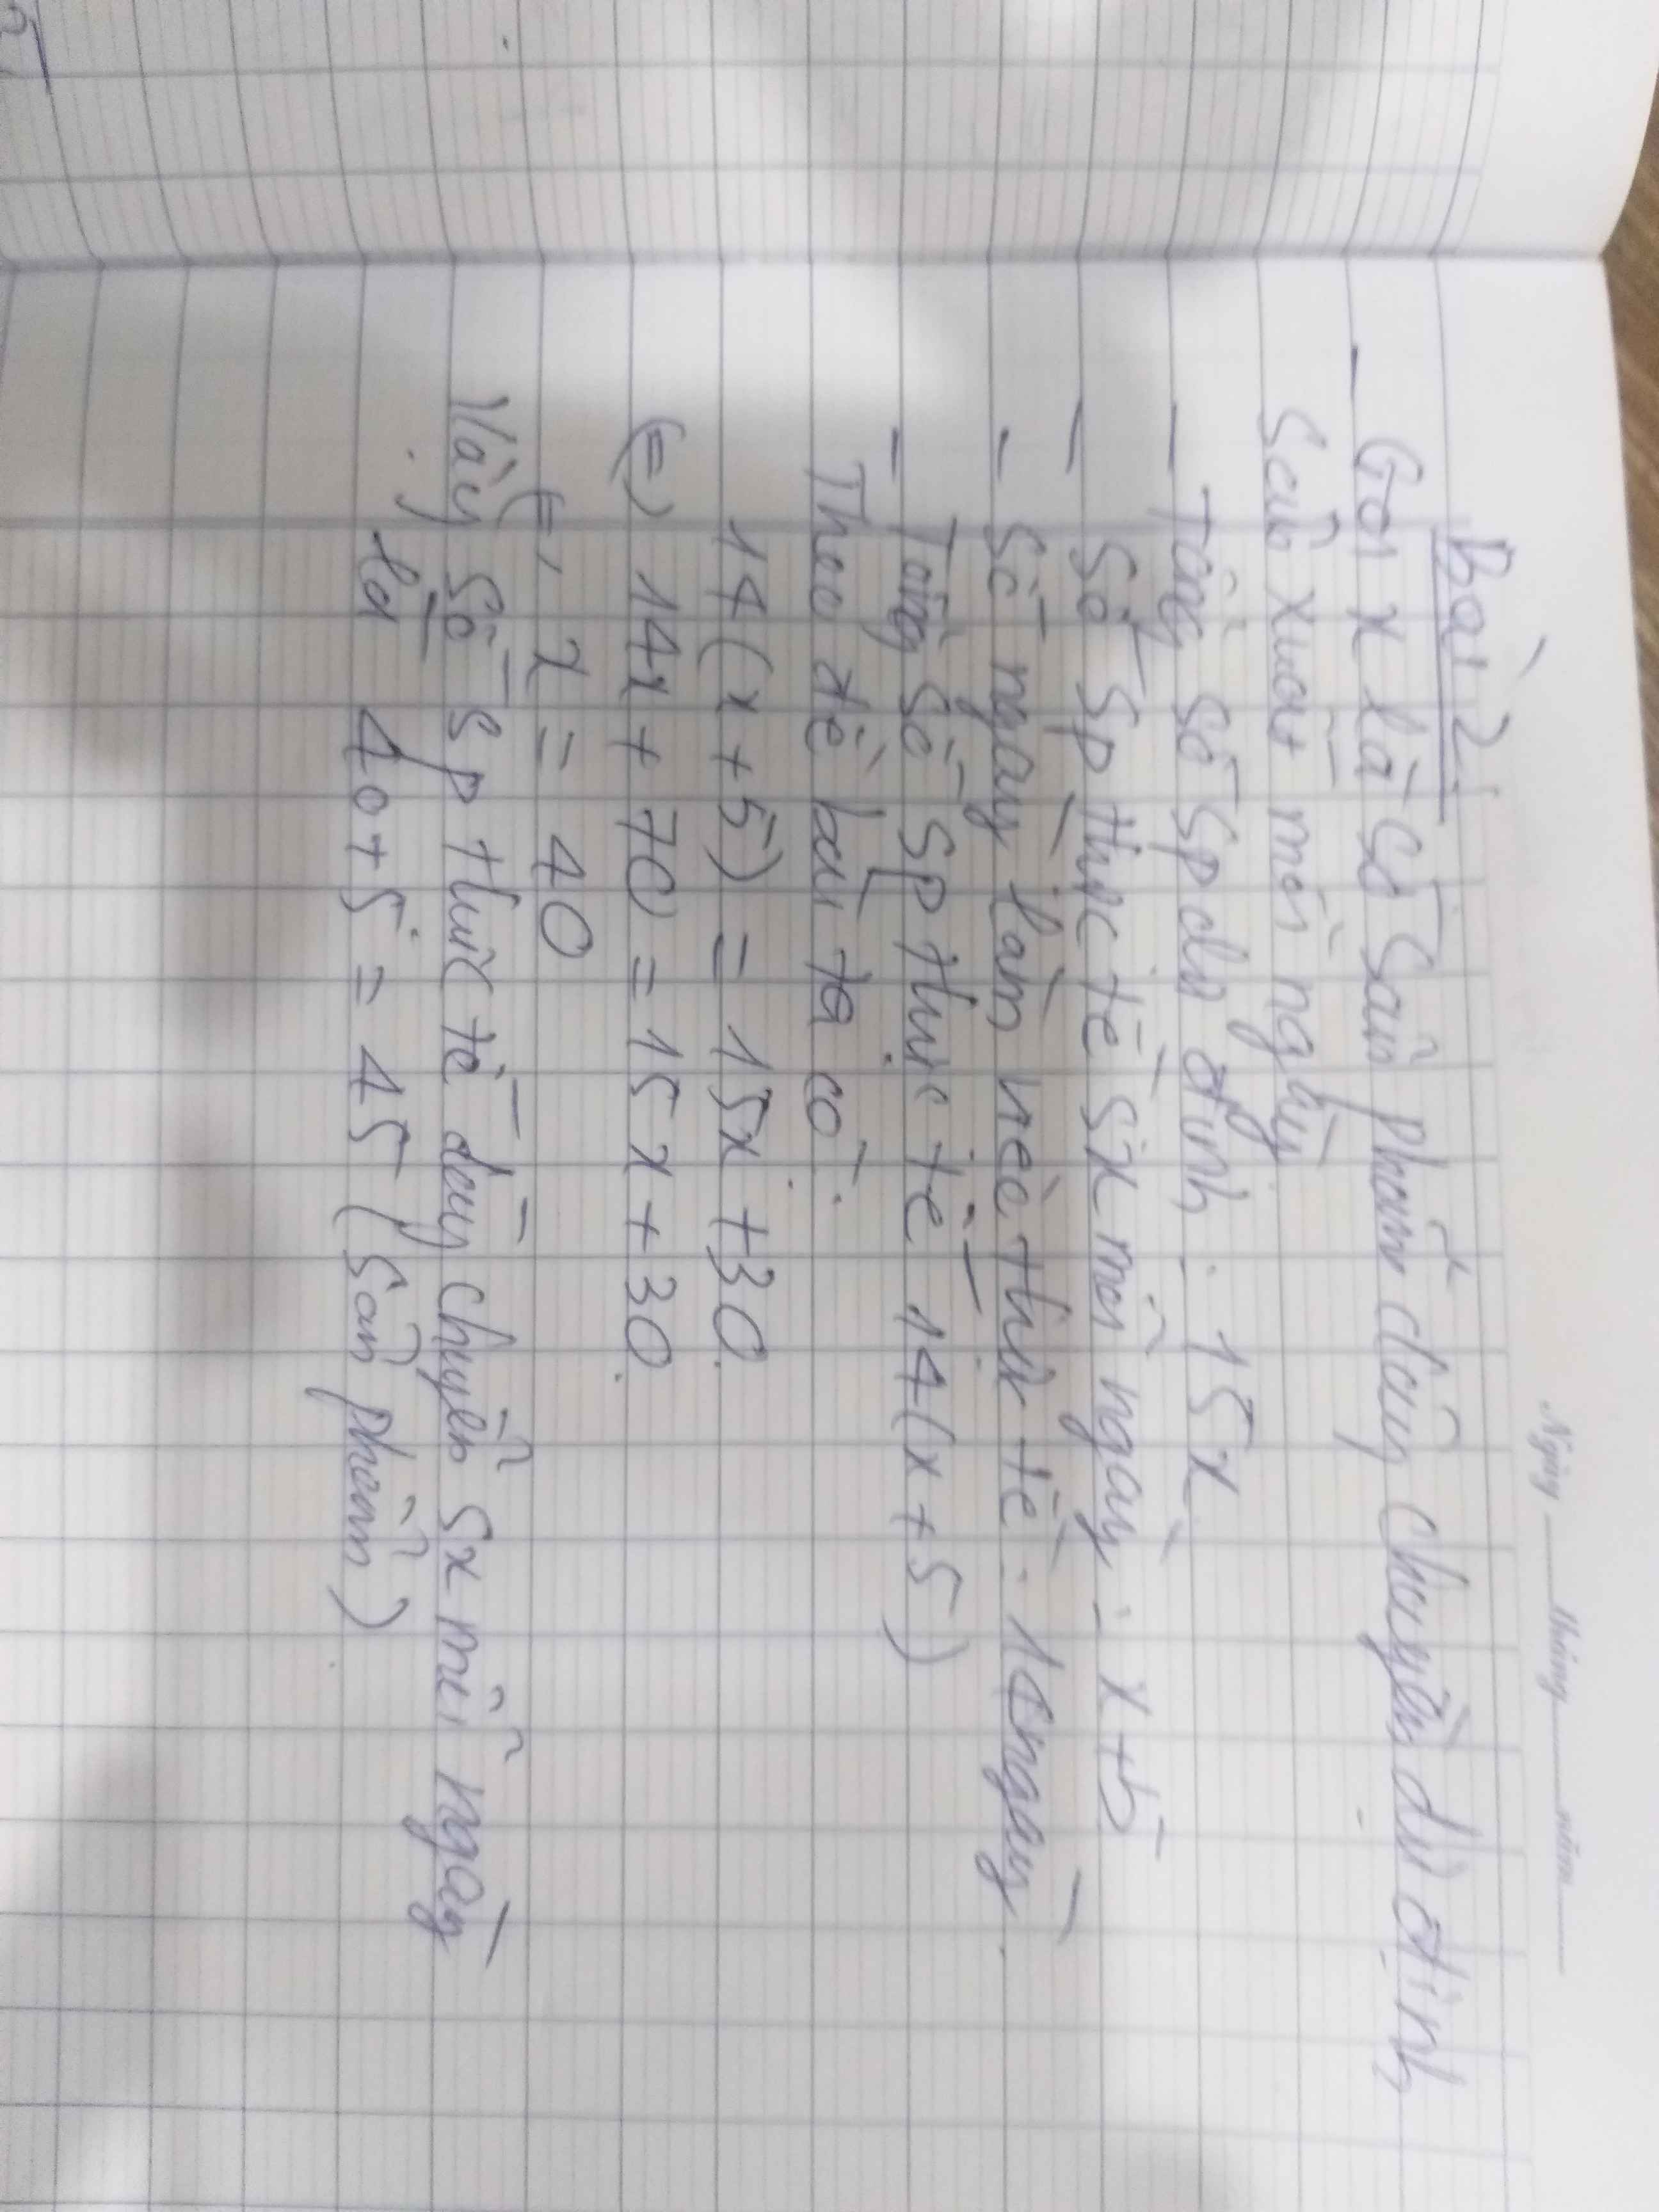 Ngày tháng năm
Bài 2:
– Gọi x là số sản phẩm dây chuyền dự định
sản xuất mỗi ngày
– Tổng số sp dự định : 15x
– Số sp thực tế sx mỗi ngày : x+5
– Số ngày làm việc thực tế : 14 ngày
– Tổng số sp thực tế 14(x+5)
Theo đề bài ta có :
14(x+5) = 15x +30
(=) 14x + 70 = 15x +30
(=) x = 40
Vậy số sp thực tế dây chuyền sx mỗi ngày
là 40+5 = 45 (sản phẩm)